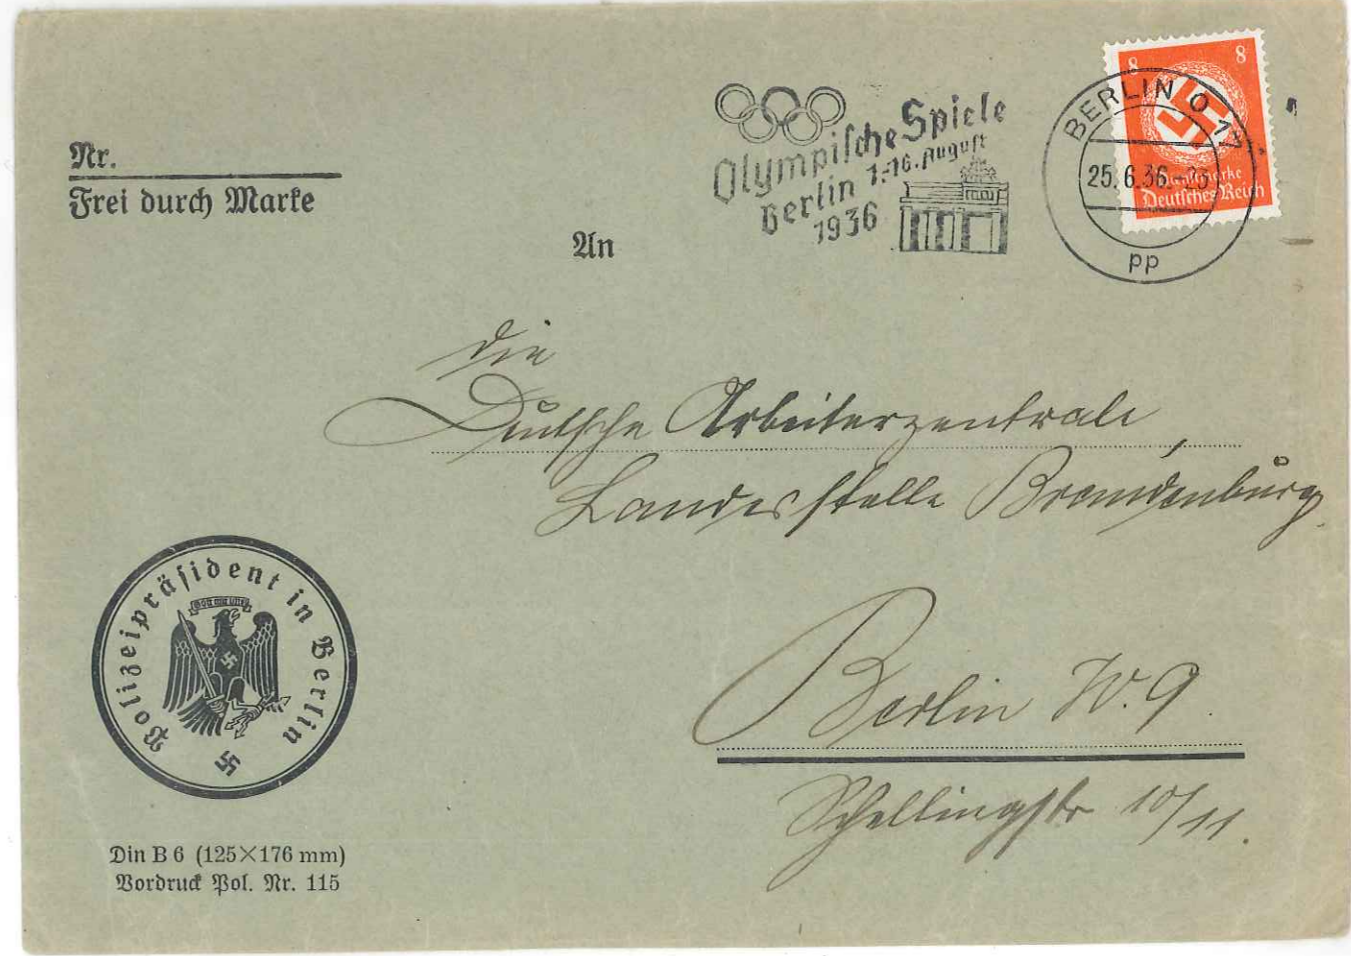 Nr.
Frei durch Marke
An
Olympische Spiele
Berlin 1.-16. August
1936
BERLIN O 17
25.6.36
pp
8 8
Dienstmarke
Deutsches Reich
die
Deutsche Arbeiterzentrale,
Landesstelle Brandenburg
Berlin W. 9.
Schellingstr 10/11.
Polizeipräsident in Berlin
Gott mit uns
Din B 6 (125×176 mm)
Vordruck Pol. Nr. 115